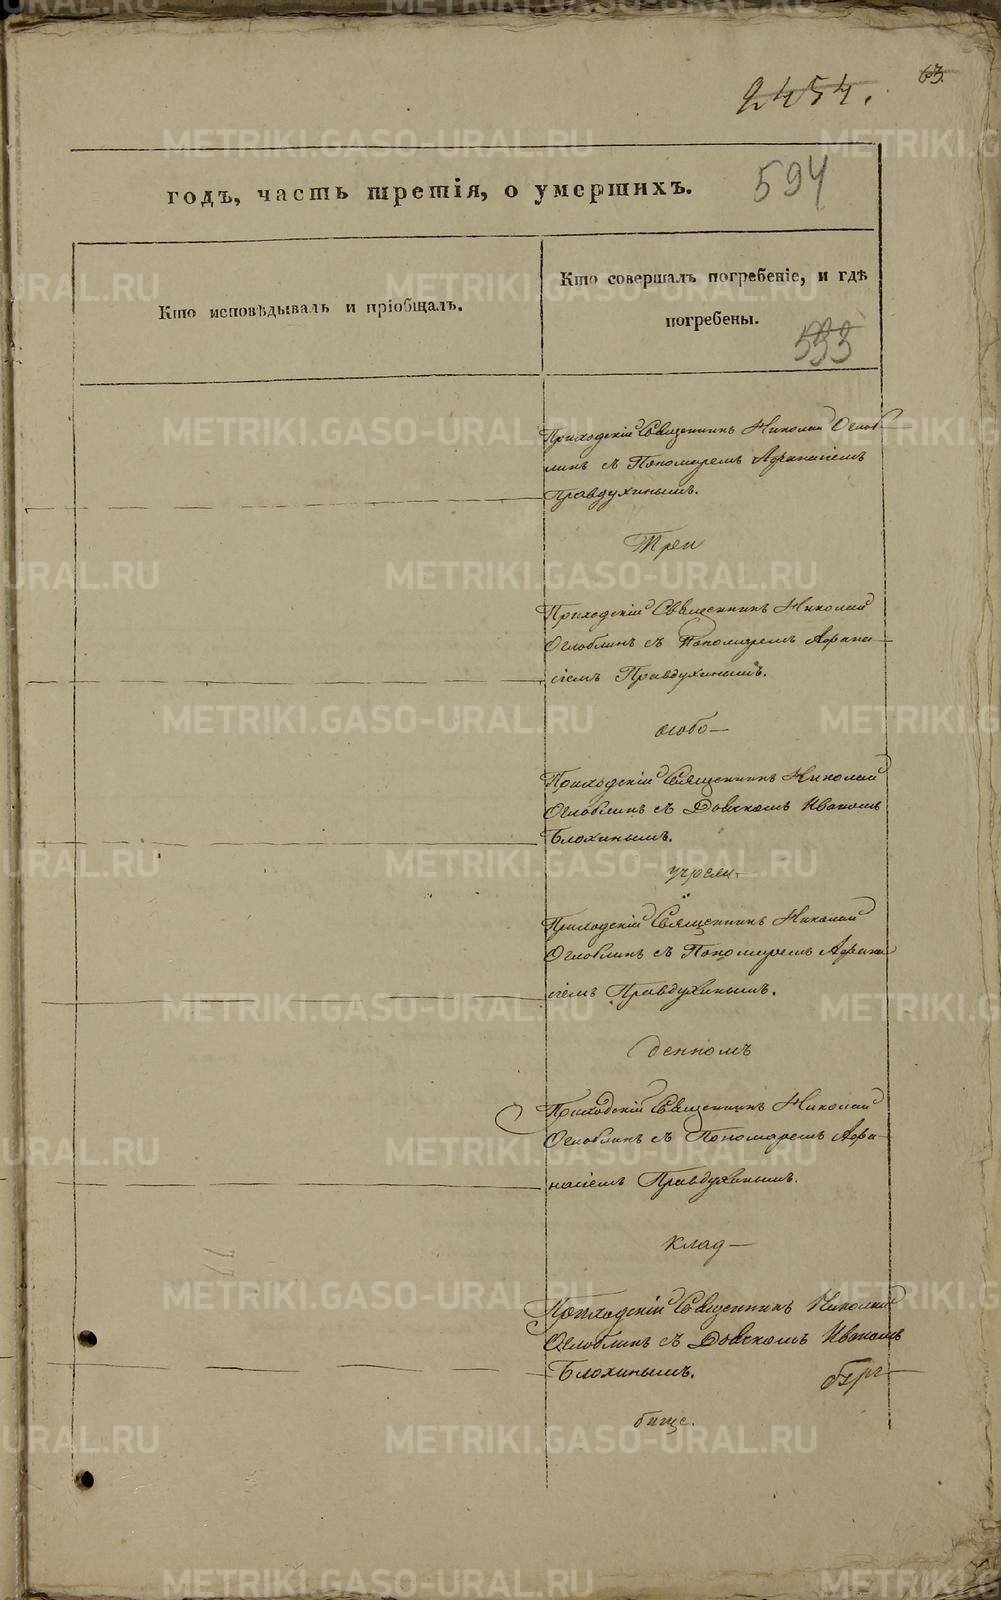 63.
2454.
годъ, часть третія, о умершихъ.
594
Кто исповѣдывалъ и пріобщалъ.
Кто совершалъ погребеніе, и гдѣ
погребены.
593
Приходскій Священникъ Николай Оглоб-
линъ съ Пономаремъ Афанасіемъ
Правдухинымъ.
Трех
Приходскій Священникъ Николай
Оглоблинъ съ Пономаремъ Афана-
сіемъ Правдухинымъ.
особо
Приходскій Священникъ Николай
Оглоблинъ съ Дьячкомъ Иваномъ
Блохинымъ.
учреж-
Приходскій Священникъ Николай
Оглоблинъ съ Пономаремъ Афана
сіемъ Правдухинымъ.
денномъ
Приходскій Священникъ Николай
Оглоблинъ съ Пономаремъ Афа-
насіемъ Правдухинымъ.
клад-
Приходскій Священникъ Николай
Оглоблинъ съ Дьячкомъ Иваномъ
Блохинымъ.
бище.
METRIKI.GASO-URAL.RU